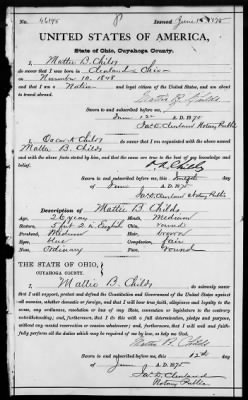 No. 46195 Issued June 15 1875
UNITED STATES OF AMERICA,
State of Ohio, Cuyahoga County.
I, Mattie B. Childs do swear
that I was born in Cleveland Ohio on
November 10, 1848
and that I am a Native
Mattie B. Childs
Sworn to and subscribed before me
June 12 A. D. 1875
Notary Public
I, Oscar A. Childs do swear that I am acquainted with the above
Mattie B. Childs
and with the above facts stated by him, and that the same are true to the best of my knowledge and
belief.
O. A. Childs
Sworn to and subscribed before me
June A. D. 1875
Notary Public
Description of Mattie B. Childs
Age, 26 years Mouth, Medium
Stature, 5 feet 2 in English Chin, round
Forehead, Medium Hair, brown
Eyes, blue Complexion, fair
Nose, Ordinary Face, round
THE STATE OF OHIO,
CUYAHOGA COUNTY.
I, Mattie B. Childs do solemnly swear
that I will support, protect and defend the Constitution and Government of the United States against
all enemies, whether domestic or foreign, and that I will bear true faith, allegiance and loyalty to the
same, any ordinance, resolution or law of any State, convention or legislature to the contrary
notwithstanding; and further, that I do this with a full determination, pledge and purpose,
without any mental reservation or evasion whatsoever; and further, that I will well and faith-
fully perform all the duties which may be required of me by law, so help me God.
Mattie B. Childs
Sworn to and subscribed before me this 12th day
of June A. D. 1875
Notary Public